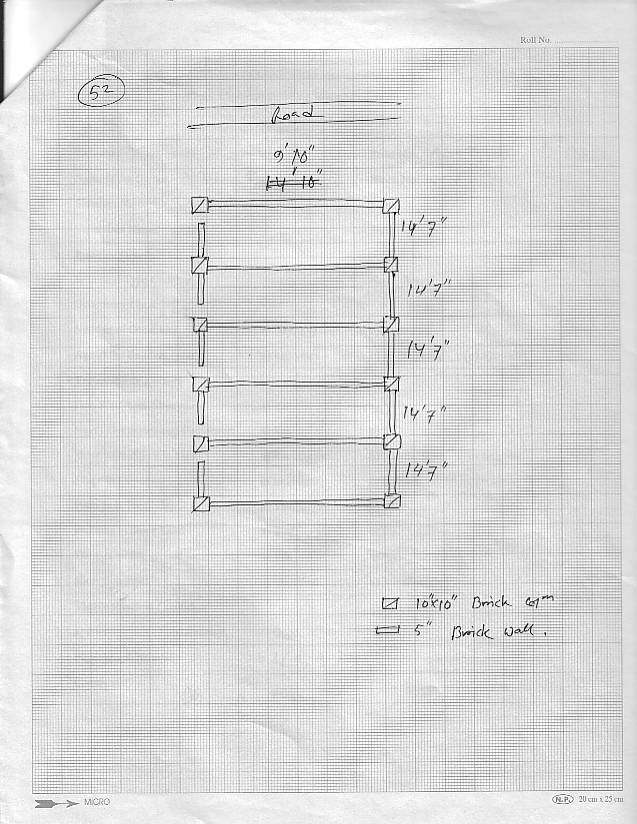 Roll No.
52
Road
9'10"
14'10"
14'7"
14'7"
14'7"
14'7"
14'7"
10"x10" Brick colm
5" Brick wall.
MICRO
N.P. 20 cm x 25 cm